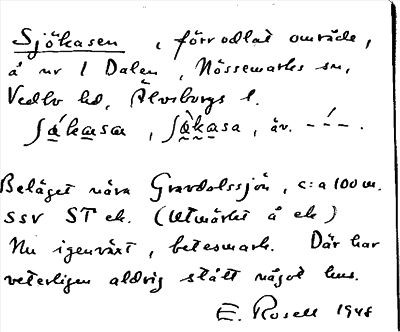 Sjökasen, förr odlat område,
å nr 1 Dalen, Nössemarks sn,
Vedbo hd, Älvsborgs l.
ʃǿkasa, ʃǿkasa, äv. - -́ -.
Beläget nära Gravdalssjön, c:a 100 m.
SSV ST ek. (Utmärkt å ek)
Nu igenväxt, betesmark. Där har
veterligen aldrig stått något hus.
E. Rosell 1948